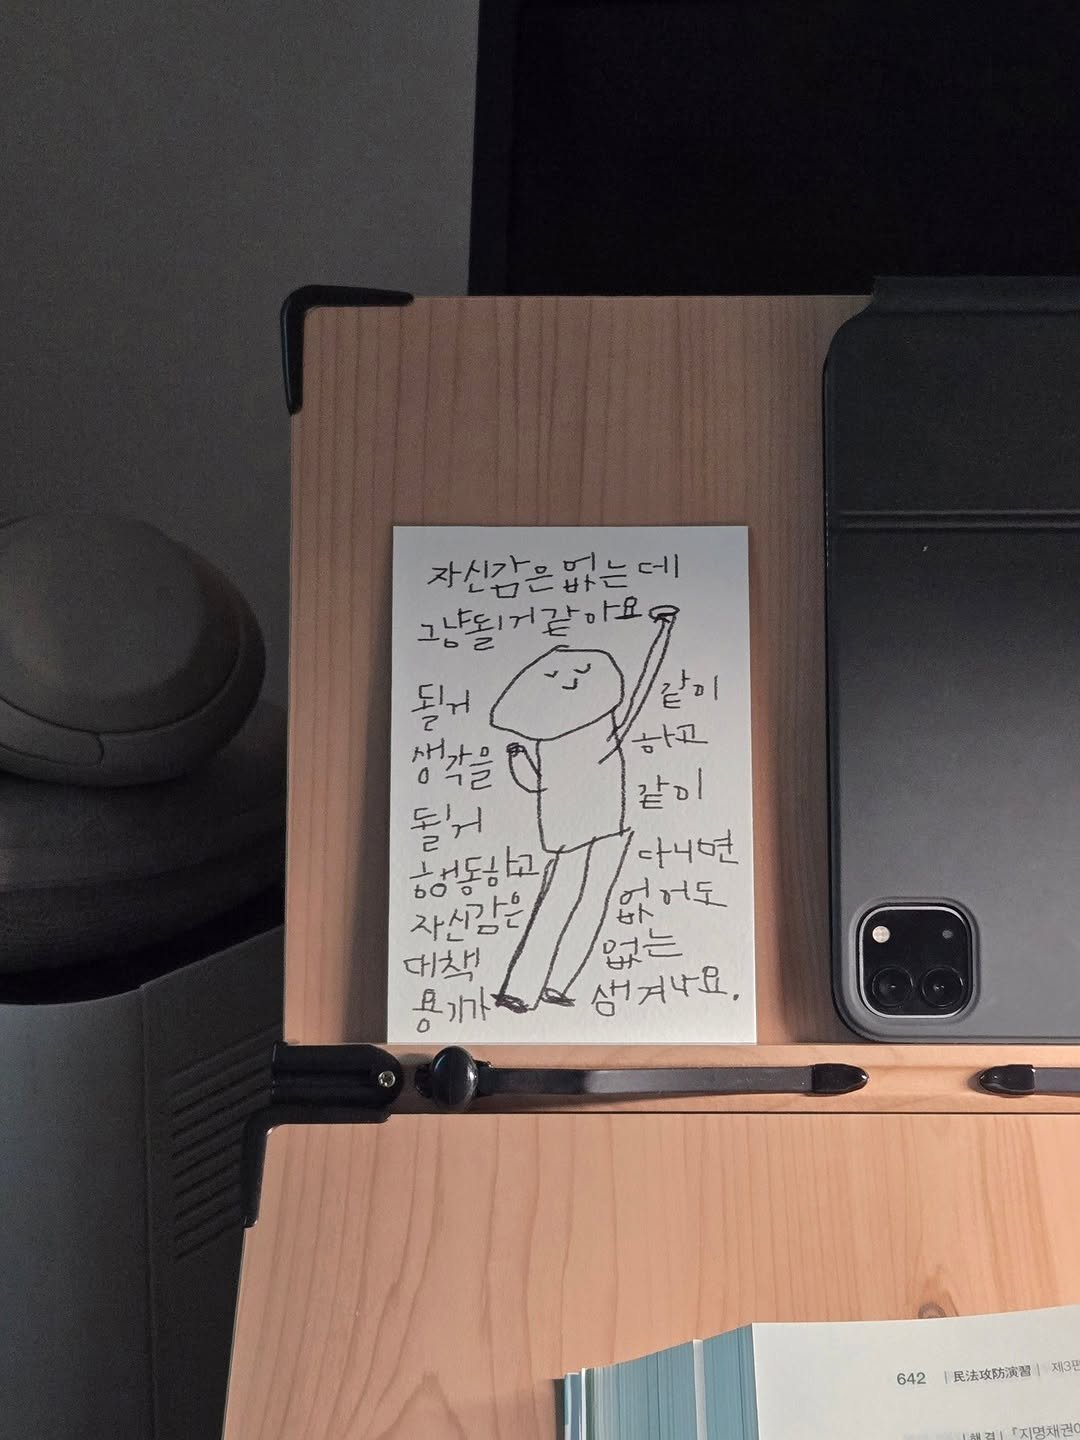 자신감은 없는데
그냥될거같아요
될거
생각을
될거
행동하고
자신감은
대책
용기가
같이
하고
같이
다니면
없어도
없는
샘겨나요.
642 | 民法攻防演習 | 제3편
해결 | 『지명채권